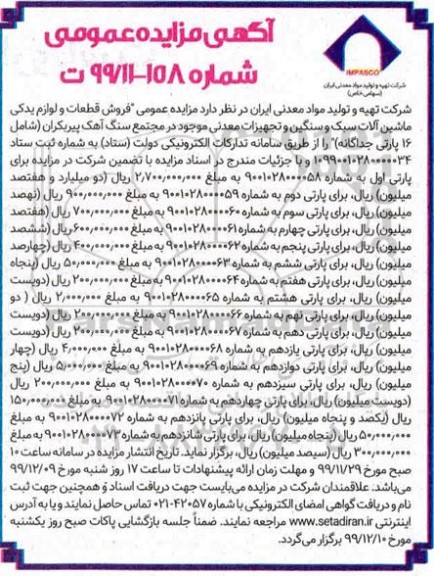 آگهی مزایده عمومی
شماره ۱۵۸-۹۹/۱۱ ت
IMPASCO
شرکت تهیه و تولید مواد معدنی ایران
(سهامی خاص)
شرکت تهیه و تولید مواد معدنی ایران در نظر دارد مزایده عمومی "فروش قطعات و لوازم یدکی
ماشین آلات سبک و سنگین و تجهیزات معدنی موجود در مجتمع سنگ آهک پیربکران (شامل
۱۶ پارتی جداگانه)" را از طریق سامانه تدارکات الکترونیکی دولت (ستاد) به شماره ثبت ستاد
و با جزئیات مندرج در اسناد مزایده با تضمین شرکت در مزایده برای
پارتی اول به شماره ۹۰۰۱۰۲۸۰۰۰۰۵۸ به مبلغ ۲,۷۰۰,۰۰۰,۰۰۰ ریال (دو میلیارد و هفتصد
میلیون) ریال، برای پارتی دوم به شماره ۹۰۰۱۰۲۸۰۰۰۰۵۹ به مبلغ ۹۰۰,۰۰۰,۰۰۰ ریال (نهصد
میلیون) ریال، برای پارتی سوم به شماره ۹۰۰۱۰۲۸۰۰۰۰۶۰ به مبلغ ۷۰۰,۰۰۰,۰۰۰ ریال (هفتصد
میلیون) ریال، برای پارتی چهارم به شماره ۹۰۰۱۰۲۸۰۰۰۰۶۱ به مبلغ ۶۰۰,۰۰۰,۰۰۰ ریال (ششصد
میلیون) ریال، برای پارتی پنجم به شماره ۹۰۰۱۰۲۸۰۰۰۰۶۲ به مبلغ ۴۰۰,۰۰۰,۰۰۰ ریال (چهارصد
میلیون) ریال، برای پارتی ششم به شماره ۹۰۰۱۰۲۸۰۰۰۰۶۳ به مبلغ ۵۰,۰۰۰,۰۰۰ ریال (پنجاه
میلیون) ریال، برای پارتی هفتم به شماره ۹۰۰۱۰۲۸۰۰۰۰۶۴ به مبلغ ۲۰۰,۰۰۰,۰۰۰ ریال (دویست
میلیون) ریال، برای پارتی هشتم به شماره ۹۰۰۱۰۲۸۰۰۰۰۶۵ به مبلغ ۲,۰۰۰,۰۰۰ ریال ( دو
میلیون) ریال، برای پارتی نهم به شماره ۹۰۰۱۰۲۸۰۰۰۰۶۶ به مبلغ ۲۰۰,۰۰۰,۰۰۰ ریال (دویست
میلیون) ریال، برای پارتی دهم به شماره ۹۰۰۱۰۲۸۰۰۰۰۶۷ به مبلغ ۲۰۰,۰۰۰,۰۰۰ ریال (دویست
میلیون) ریال، برای پارتی یازدهم به شماره ۹۰۰۱۰۲۸۰۰۰۰۶۸ به مبلغ ۴,۰۰۰,۰۰۰ ریال (چهار
میلیون) ریال، برای پارتی دوازدهم به شماره ۹۰۰۱۰۲۸۰۰۰۰۶۹ به مبلغ ۵,۰۰۰,۰۰۰ ریال (پنج
میلیون) ریال، برای پارتی سیزدهم به شماره ۹۰۰۱۰۲۸۰۰۰۰۷۰ به مبلغ ۲۰۰,۰۰۰,۰۰۰ ریال
(دویست میلیون) ریال، برای پارتی چهاردهم به شماره ۹۰۰۱۰۲۸۰۰۰۰۷۱ به مبلغ ۱۵۰,۰۰۰,۰۰۰
ریال (یکصد و پنجاه میلیون) ریال، برای پارتی پانزدهم به شماره ۹۰۰۱۰۲۸۰۰۰۰۷۲ به مبلغ
۵۰,۰۰۰,۰۰۰ ریال (پنجاه میلیون) ریال، برای پارتی شانزدهم به شماره ۹۰۰۱۰۲۸۰۰۰۰۷۳ به مبلغ
۳۰۰,۰۰۰,۰۰۰ ریال (سیصد میلیون) ریال، برگزار نماید. تاریخ انتشار مزایده در سامانه ساعت ۱۰
صبح مورخ ۹۹/۱۱/۲۹ و مهلت زمان ارائه پیشنهادات تا ساعت ۱۷ روز شنبه مورخ ۹۹/۱۲/۰۹
می‌باشد. علاقمندان شرکت در مزایده می‌بایست جهت دریافت اسناد و همچنین جهت ثبت
نام و دریافت گواهی امضای الکترونیکی با شماره ۴۲۰۵۷-۰۲۱ تماس حاصل نمایند و یا به آدرس
اینترنتی www.setadiran.ir مراجعه نمایند. ضمناً جلسه بازگشایی پاکات صبح روز یکشنبه
مورخ ۹۹/۱۲/۱۰ برگزار می‌گردد.